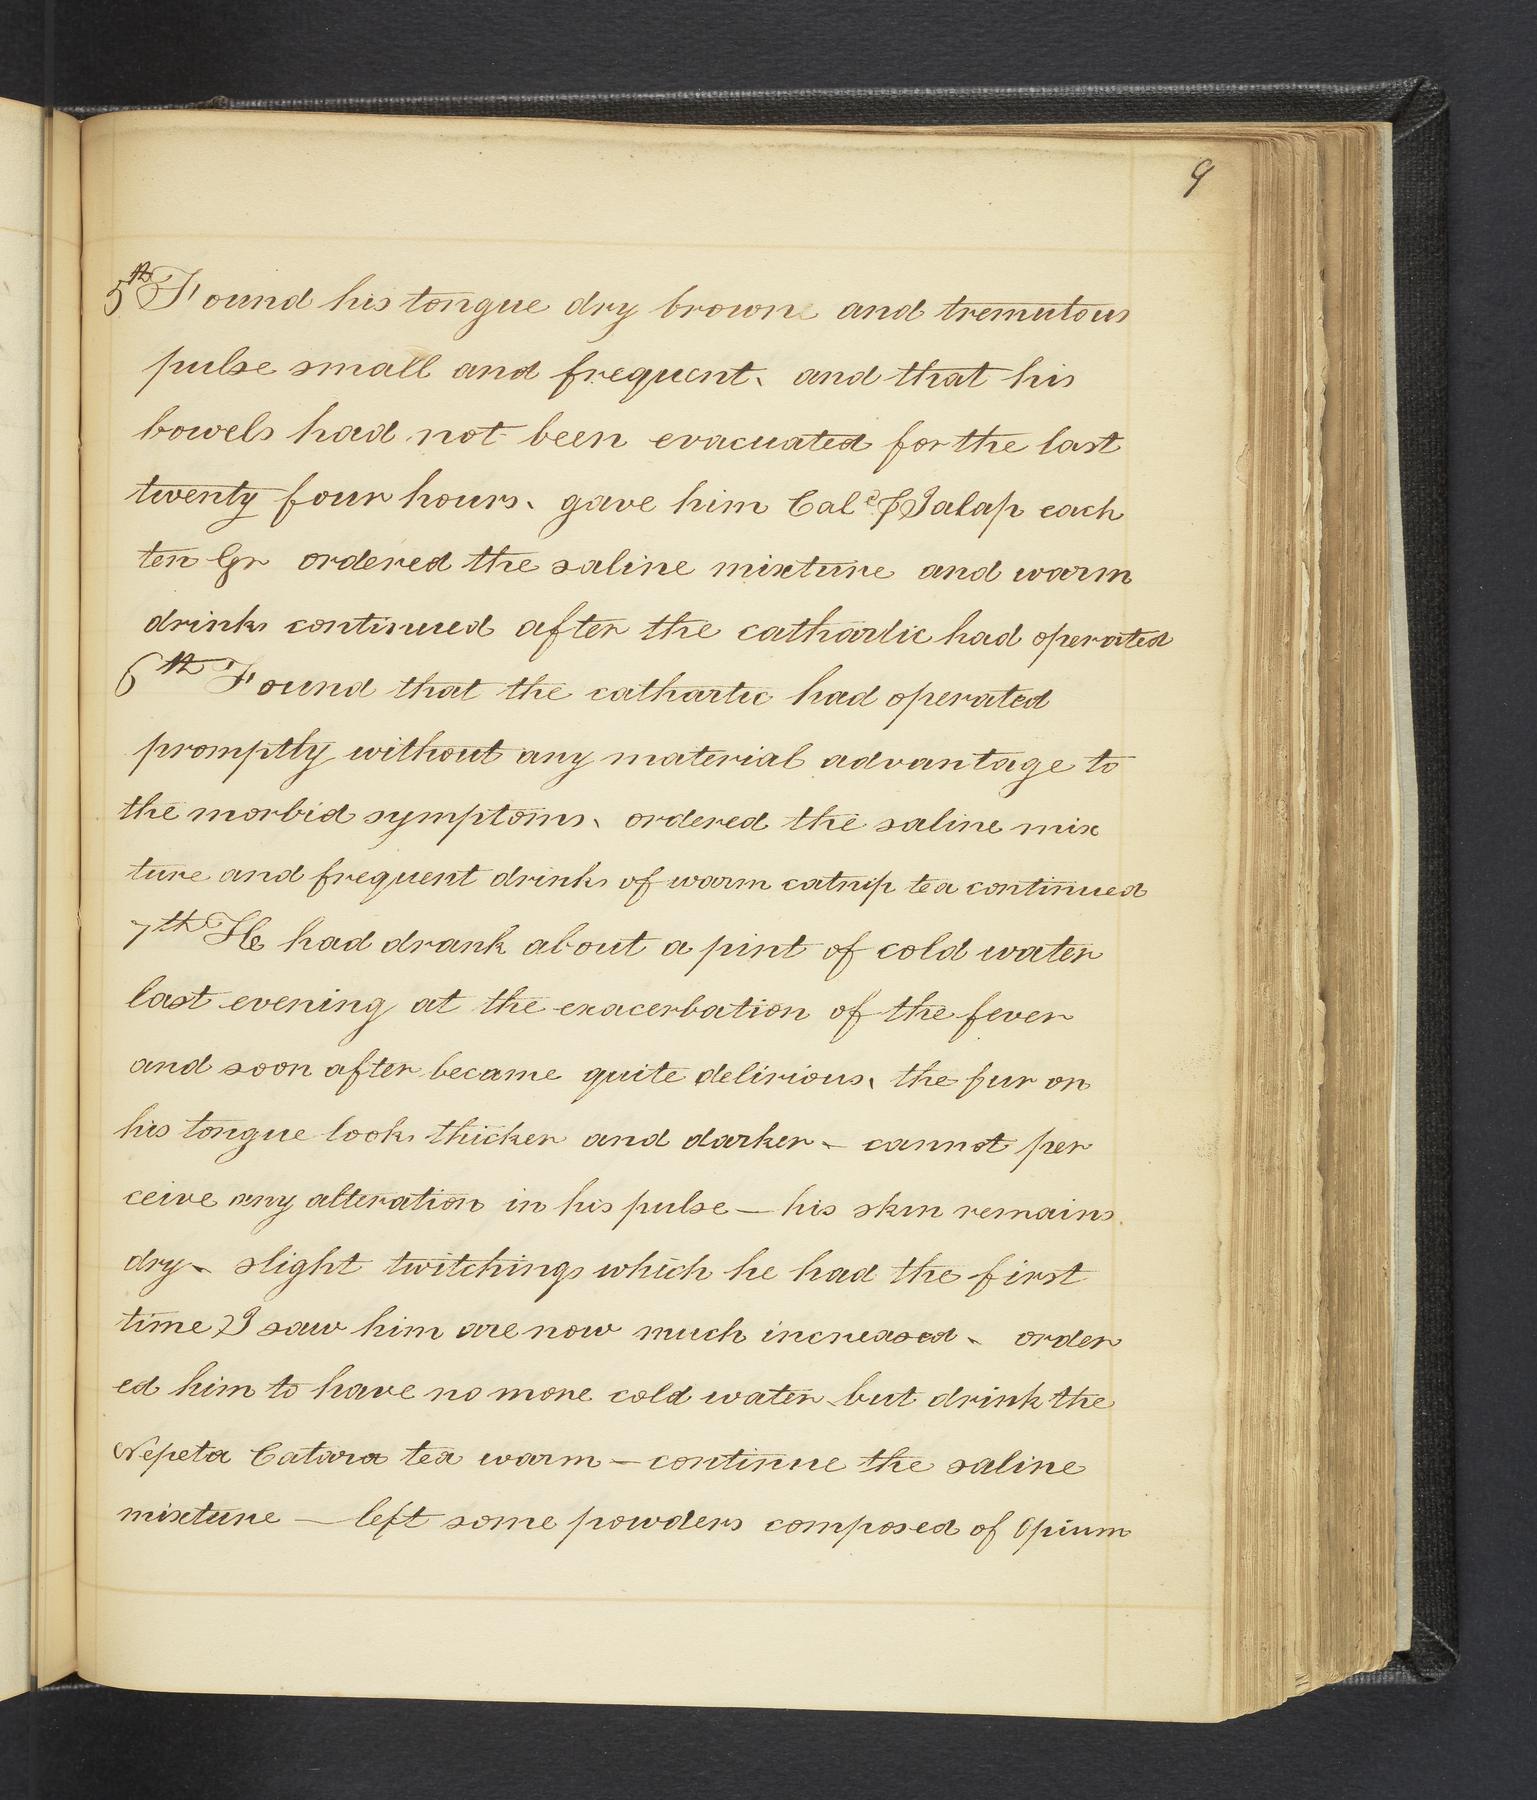 9
5th Found his tongue dry brown and tremulous
pulse small and frequent, and that his
bowels had not been evacuated for the last
twenty four hours, gave him Cale & Jalap each
ten Gr ordered the saline mixture and warm
drinks continued after the cathartic had operated
6th Found that the cathartic had operated
promptly without any material advantage to
the morbid symptoms, ordered the saline mix
ture and frequent drinks of warm catnip tea continued
7th He had drank about a pint of cold water
last evening at the exacerbation of the fever
and soon after became quite delirious, the fur on
his tongue looks thicker and darker - cannot per
ceive any alteration in his pulse — his skin remains
dry - slight twitchings which he had the first
time I saw him are now much increased - order
ed him to have no more cold water but drink the
Nepeta Catara tea warm — continue the saline
mixture — left some powders composed of Opium